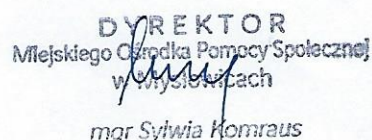 DYREKTOR
Miejskiego Ośrodka Pomocy Społecznej
w Mysłowicach
mgr Sylwia Komraus